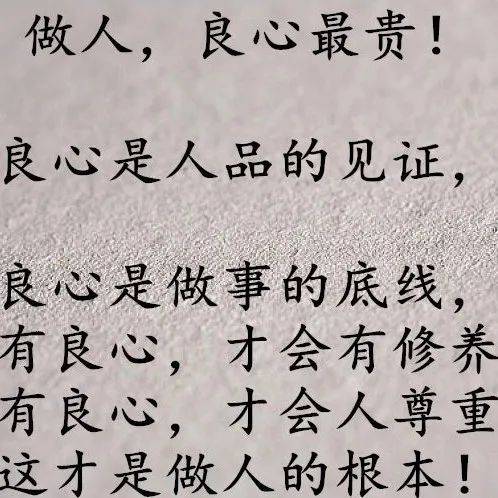 做人，良心最贵！
良心是人品的见证，
良心是做事的底线，
有良心，才会有修养
有良心，才会人尊重
这才是做人的根本！